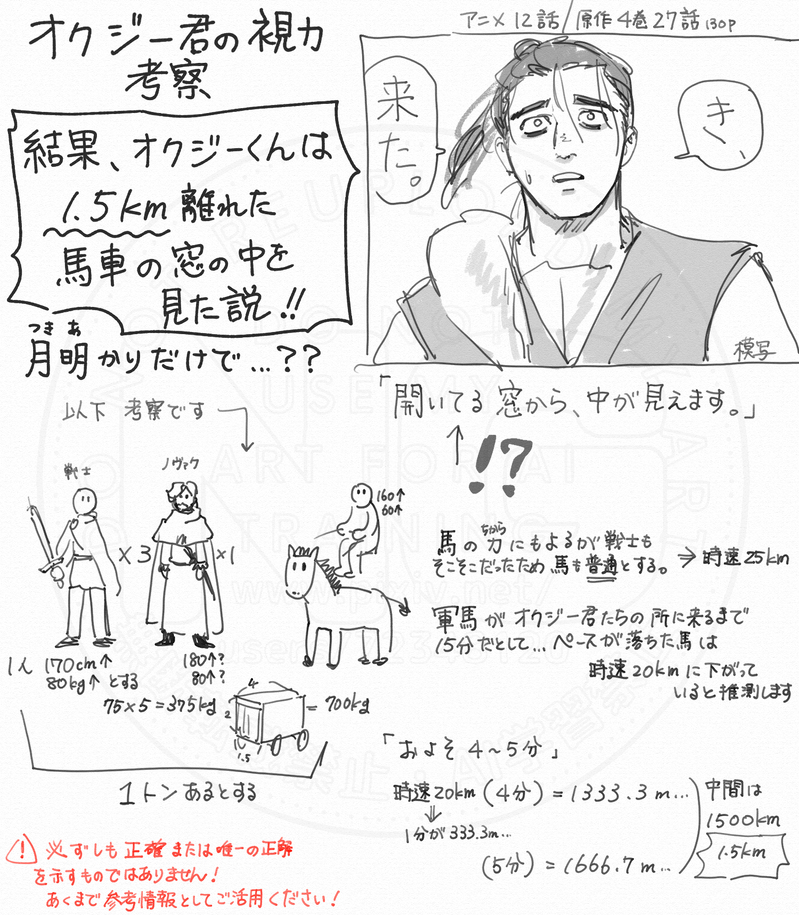 オクジー君の視力
考察
結果、オクジーくんは
1.5km 離れた
馬車の窓の中を
見た説!!
つき あ
月明かりだけで…??
アニメ12話/原作4巻27話130P
来た。
きく、
模写
「開いてる窓から、中が見えます。」
!?
以下 考察です
戦士
ノヴァク
×3
×1
160↑
60↑
1人 170cm↑
80kg↑ とする
180↑?
80↑?
75×5=375kg
4
2
1.5
=700kg
1トンあるとする
ちから
馬の力にもよるが戦士も
そこそこだったため馬も普通とする。
→時速25km
軍馬がオクジー君たちの所に来るまで
15分だとして…ペースが落ちた馬は
時速20kmに下がって
いると推測します
「およそ4~5分」
時速20km(4分)=1333.3m…
1分が333.3m…
(5分)=1666.7m…
中間は
1500km
1.5km
必ずしも正確または唯一の正解
を示すものではありません!
あくまで参考情報としてご活用ください!
DO NOT
USE MY
ART FOR AI
TRAINING
www.pixiv.net/